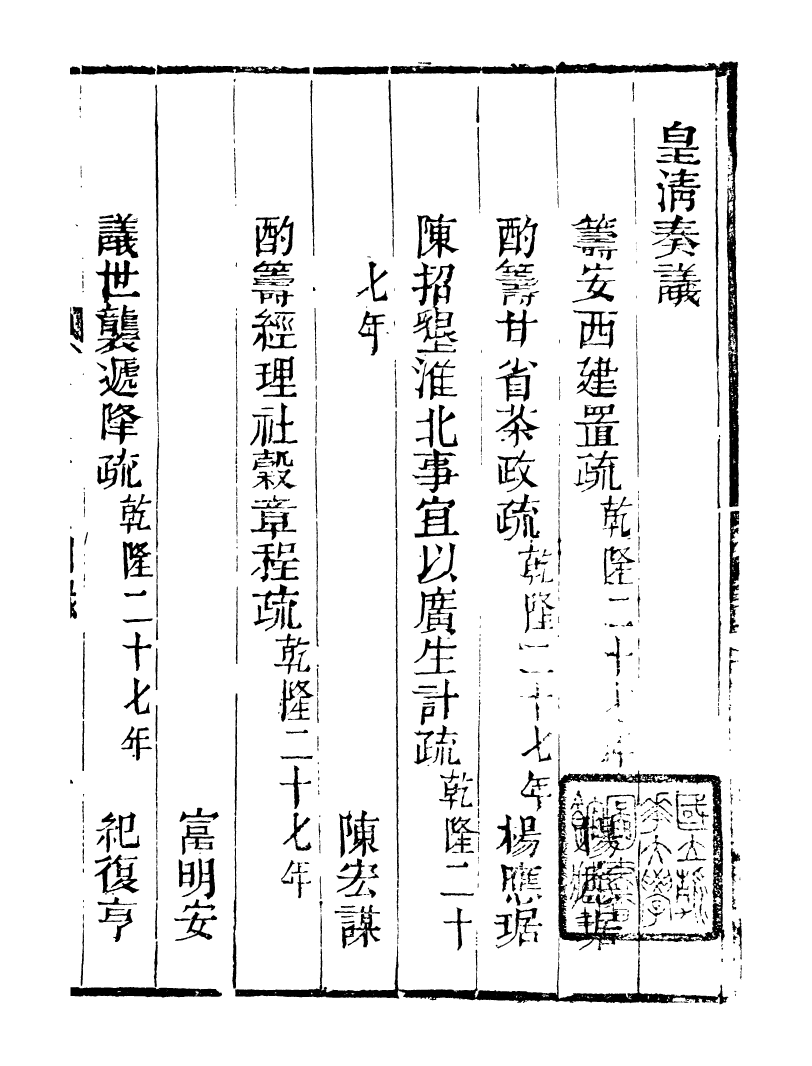 皇淸奏議
籌安西建置疏乾隆二十七年 楊應琚
酌籌甘省茶政疏乾隆二十七年 楊應琚
陳招墾淮北事宜以廣生計疏乾隆二十
七年 陳宏謀
酌籌經理社穀章程疏乾隆二十七年
富明安
議世襲遞降疏乾隆二十七年 紀復亨
目錄